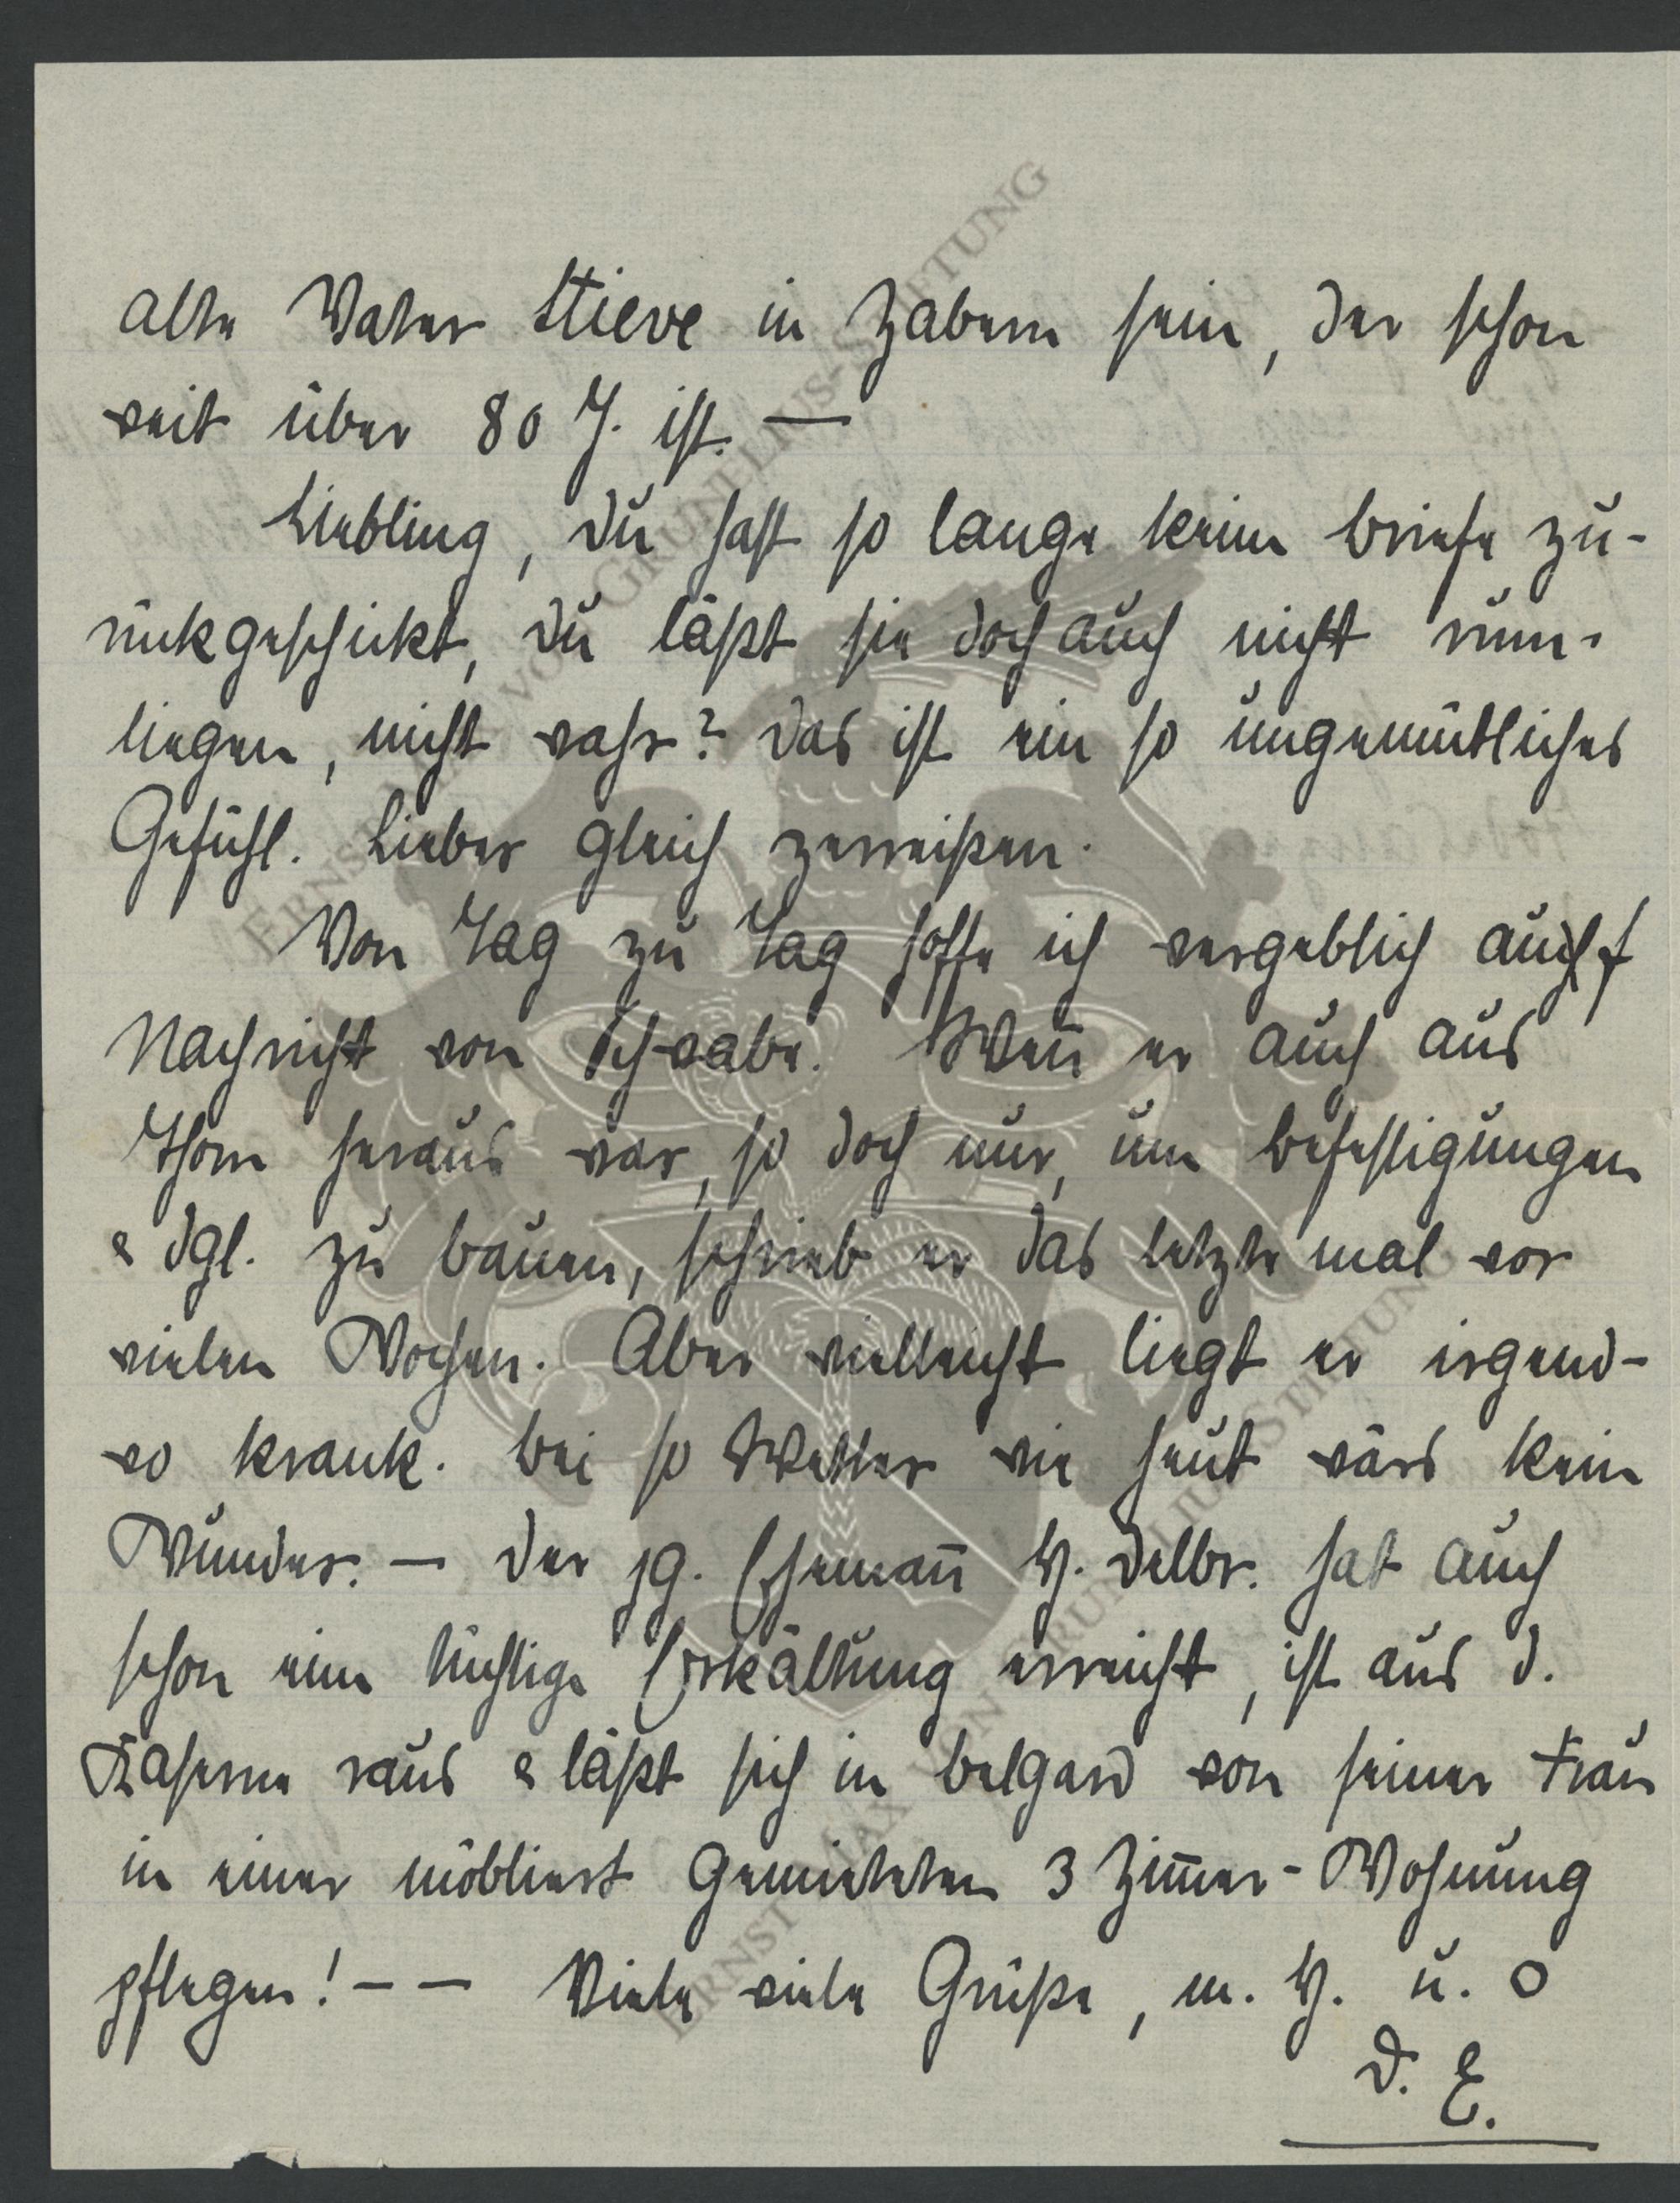 alte Vater Stieve in Zabern sein, der schon
weit über 80 J. ist. —
Liebling, du hast so lange keine Briefe zu-
rückgeschickt, du läßt sie doch auch nicht rum-
liegen, nicht wahr? Das ist ein so ungemütliches
Gefühl. Lieber gleich zerreißen.
Von Tag zu Tag hoffe ich vergeblich auf
Nachricht von Schwabe. Wenn er auch aus
Thorn heraus war, so doch nur, um Befestigungen
& dgl. zu bauen, schrieb er das letzte mal vor
vielen Wochen. Aber vielleicht liegt er irgend-
wo krank. Bei so Wetter wie heut wärs kein
Wunder. — Der jg. Ehemann H. Delbr. hat auch
schon eine tüchtige Erkältung erreicht, ist aus d.
Kaserne raus & läßt sich in Belgard von seiner Frau
in einer möbliert gemieteten 3 Zimmer-Wohnung
pflegen! — — Viele viele Grüße, m. H. u. O
D. E.
ERNST MAX VON GRUNELIUS-STIFTUNG
ERNST MAX VON GRUNELIUS-STIFTUNG